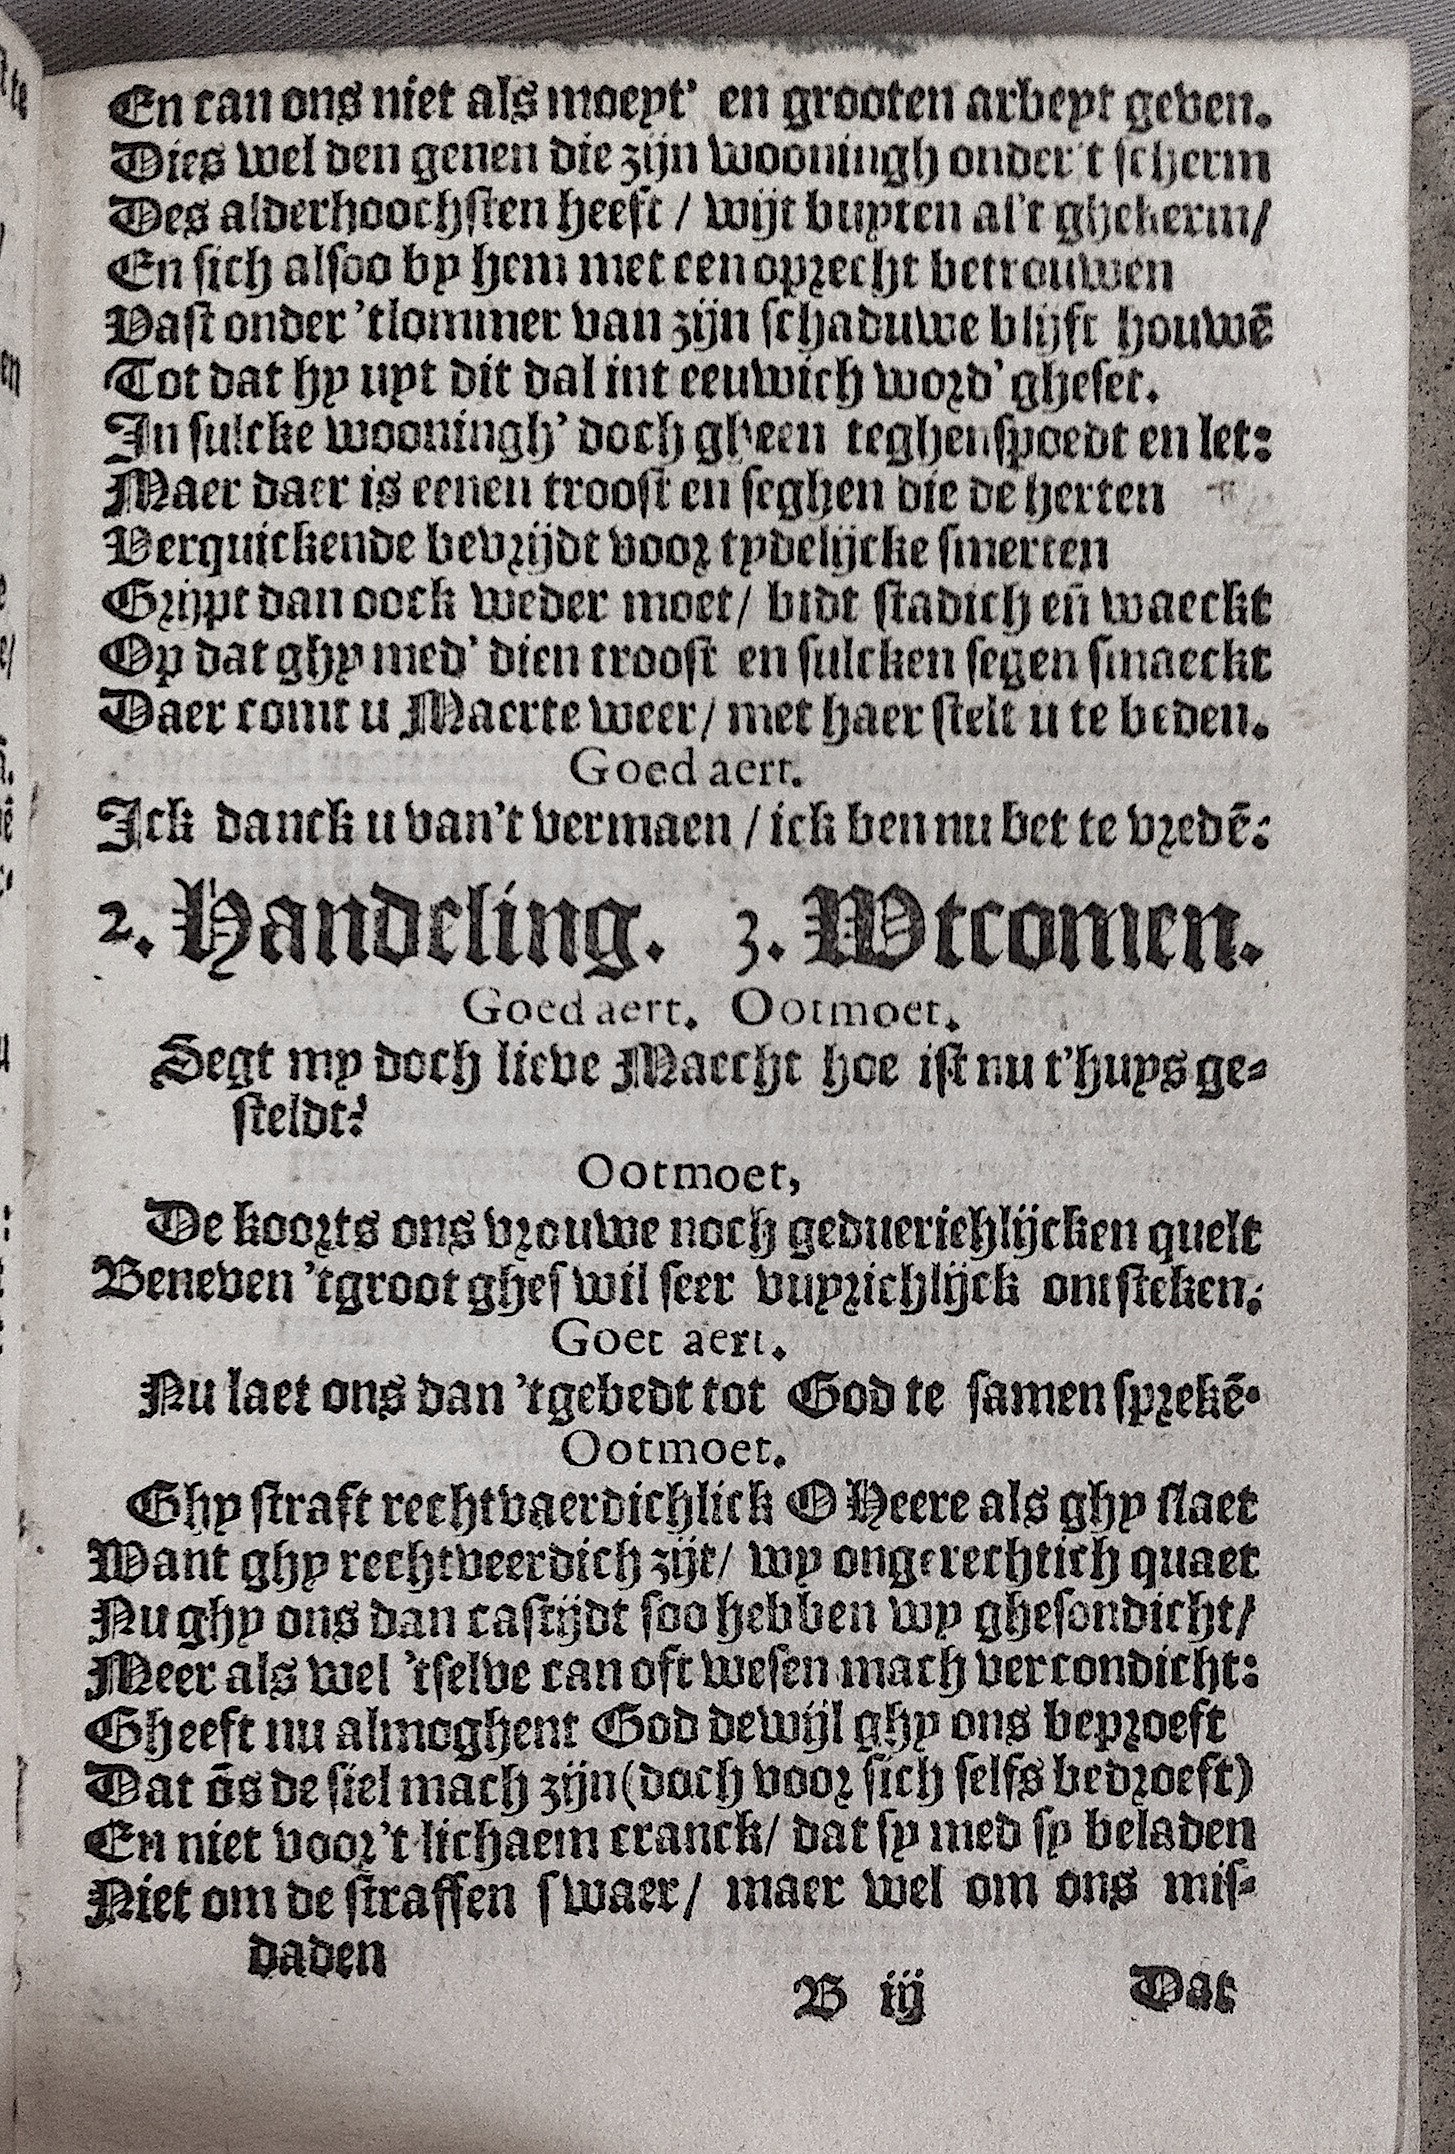 En can ons niet als moeyt' en grooten arbeyt geven.
Dies wel den genen die zijn wooningh onder't scherm
Des alderhoochsten heeft / wijt buyten al't ghekerm/
En sich alsoo by hem met een oprecht betrouwen
Vast onder 'tlommer van zijn schaduwe blijft houwē
Tot dat hy uyt dit dal int eeuwich word' gheset.
In sulcke wooningh' doch gheen teghenspoedt en let:
Maer daer is eenen troost en seghen die de herten
Verquickende bevrijdt voor tydelijcke smerten
Grijpt dan oock weder moet/ bidt stadich eñ waeckt
Op dat ghy med' dien troost en sulcken segen smaeckt
Daer comt u Maerte weer/ met haer stelt u te beden.
Goed aert.
Ick danck u van't vermaen / ick ben nu bet te vredē:
2. Handeling. 3. Wtcomen.
Goed aert. Ootmoet.
Segt my doch lieve Maecht hoe ist nu t'huys ge-
steldt?
Ootmoet,
De koorts ons vrouwe noch geduerichlijcken quelt
Beneven 'tgroot ghes wil seer vuyrichlijck ontsteken.
Goet aert.
Nu laet ons dan 'tgebedt tot God te samen sprekē.
Ootmoet.
Ghy straft rechtvaerdichlick O Heere als ghy slaet
Want ghy rechtveerdich zijt/ wy ongerechtich quaet
Nu ghy ons dan castijdt soo hebben wy ghesondicht/
Meer als wel 'tselve can oft wesen mach vercondicht:
Gheeft nu almoghent God dewijl ghy ons beproeft
Dat ōs de siel mach zijn (doch voor sich selfs bedroeft)
En niet voor't lichaem cranck/ dat sy med sy beladen
Niet om de straffen swaer/ maer wel om ons mis-
daden
B iij Dat